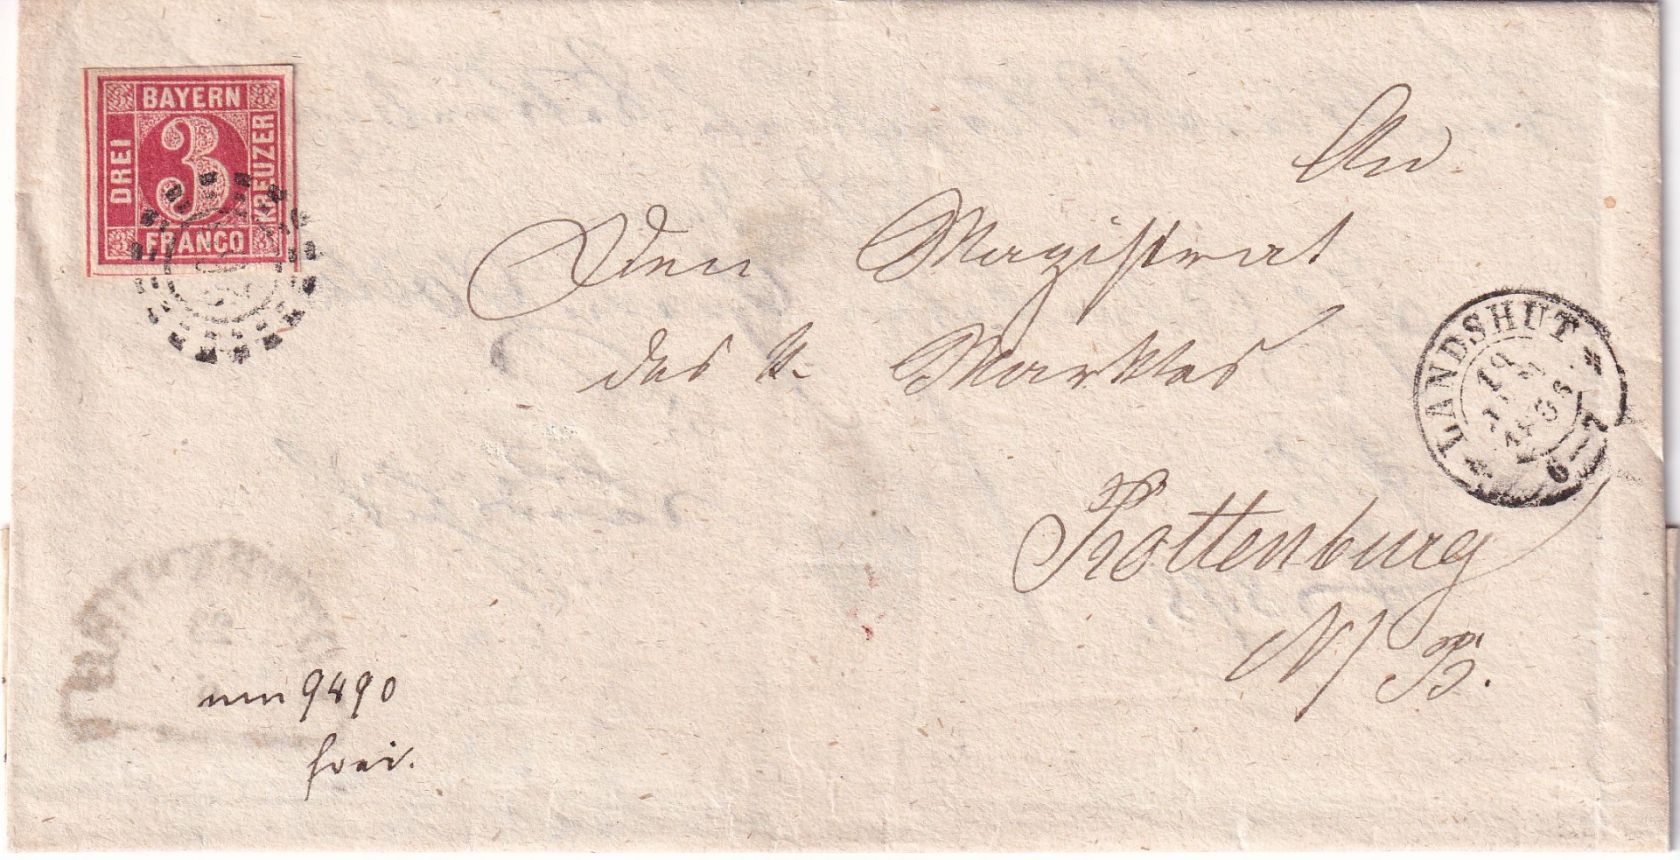 BAYERN
DREI
3
KREUZER
FRANCO
An
Den Magistrat
des k. Marktes
Rottenburg
N/B.
LANDSHUT
19
6-7
9490
frei.